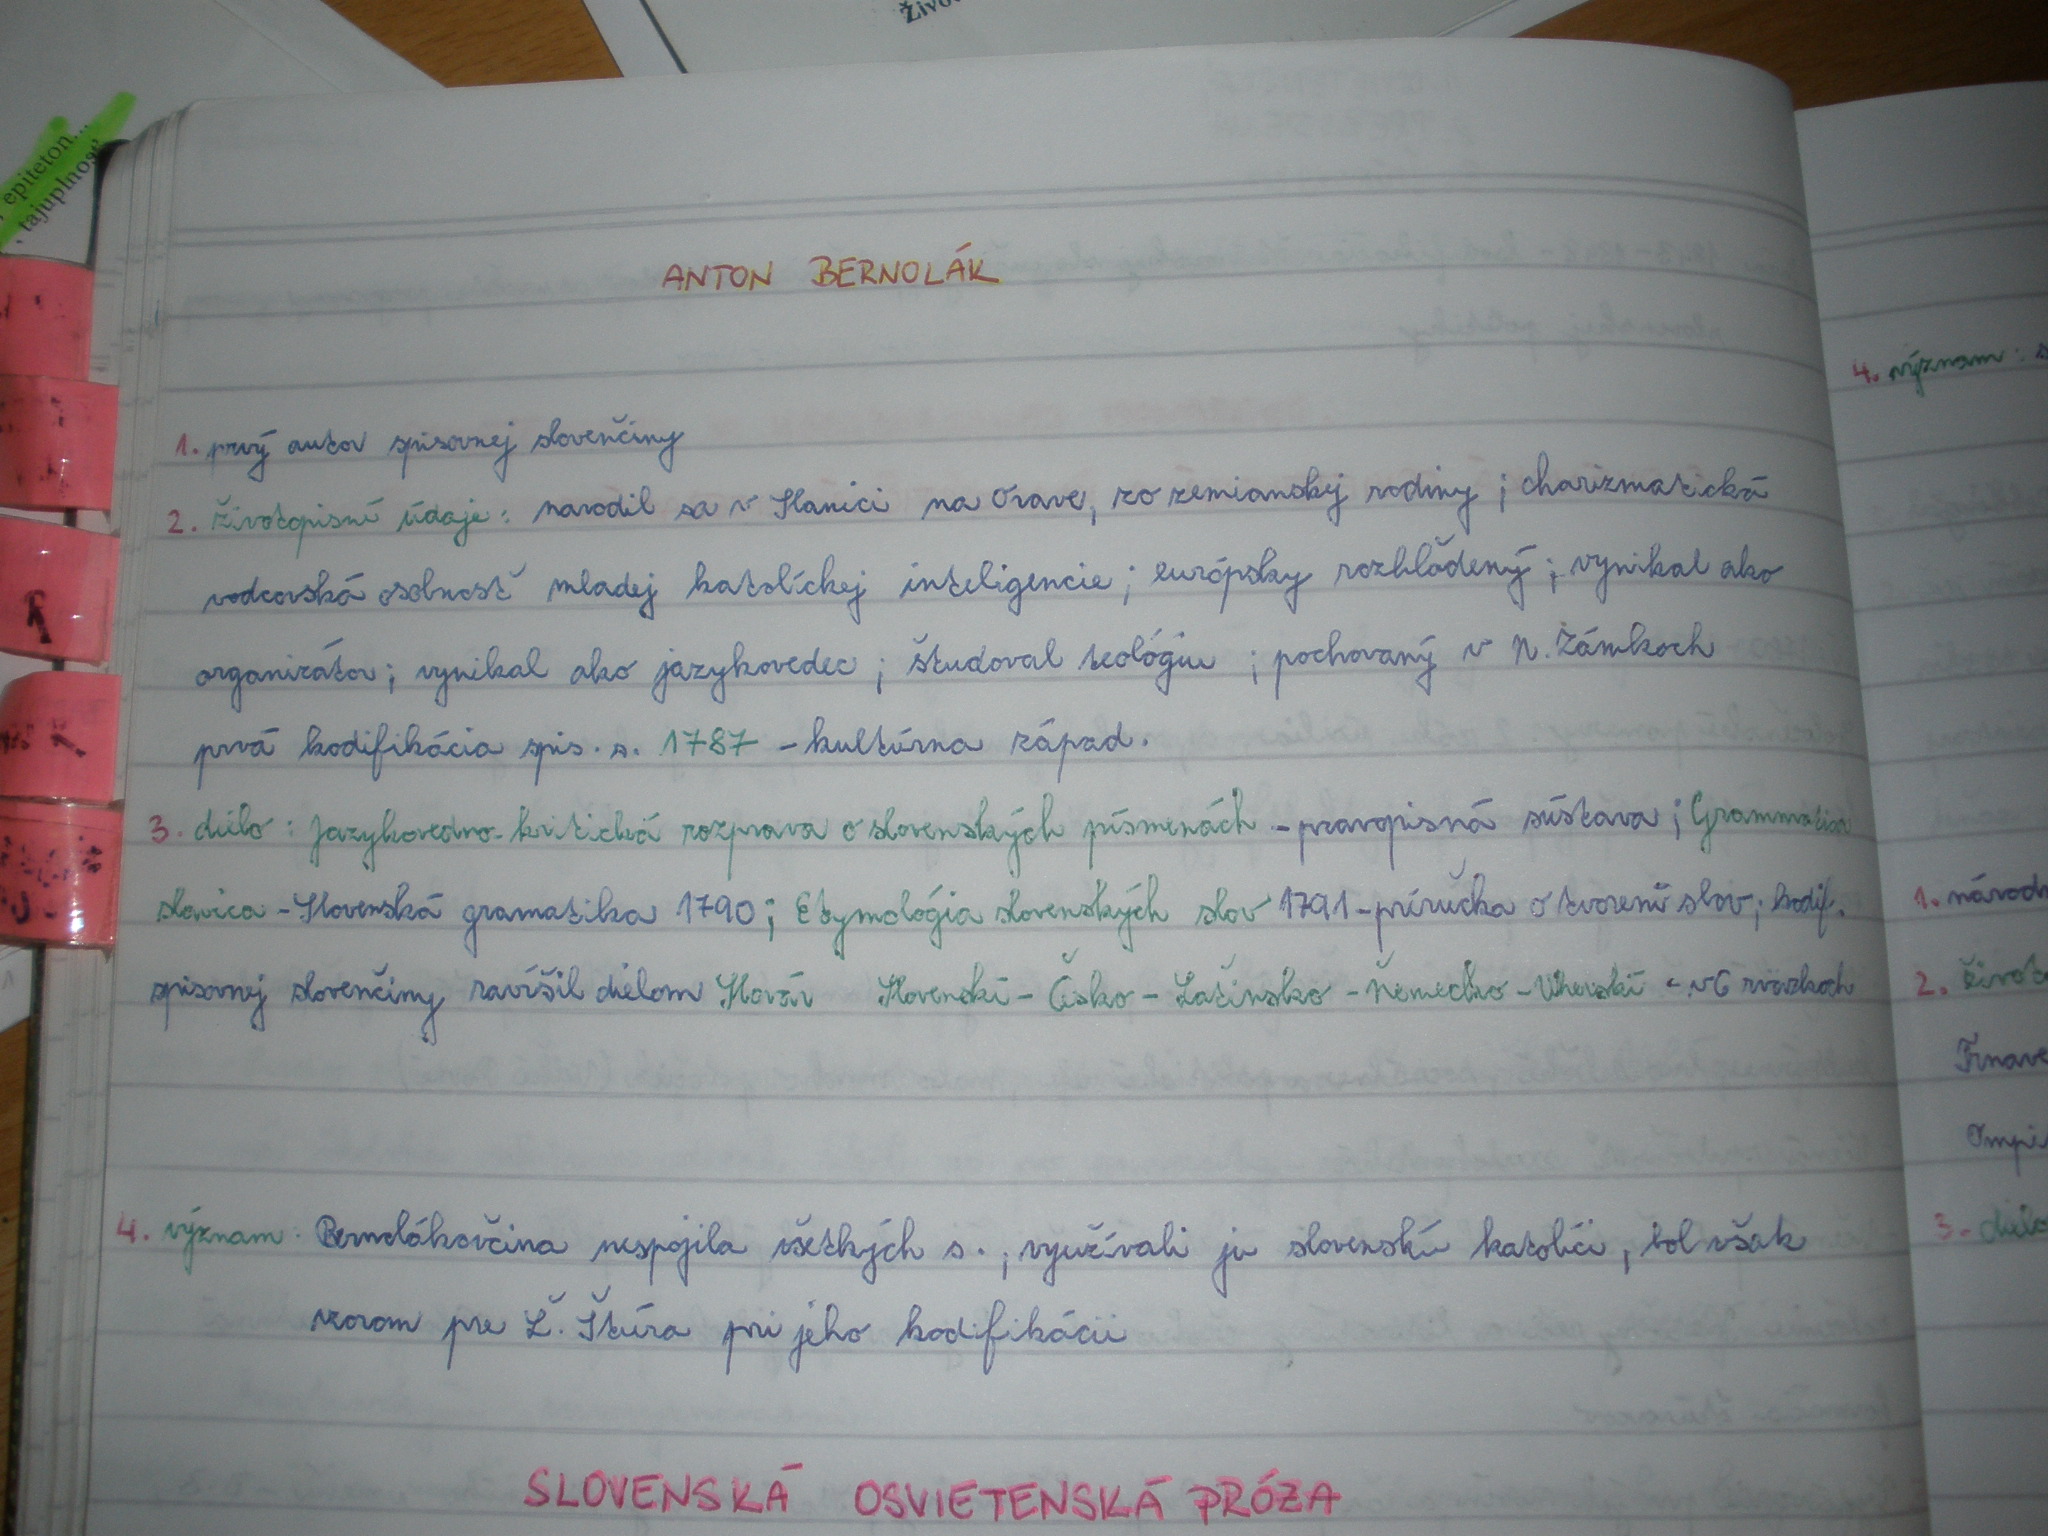 Živo
epiteton...
, tajuplnosť
ANTON BERNOLÁK
1. prvý autor spisovnej slovenčiny
2. životopisné údaje: narodil sa v Slanici na Orave, zo zemianskej rodiny; charizmatická
vodcovská osobnosť mladej katolíckej inteligencie; európsky rozhľadený; vynikal ako
organizátor; vynikal ako jazykovedec; študoval teológiu; pochovaný v N. Zámkoch
prvá kodifikácia spis. s. 1787 - kultúrna západ.
3. dielo: Jazykovedno-kritická rozprava o slovenských písmenách - pravopisná sústava; Grammatica
slavica - Slovenská gramatika 1790; Etymológia slovenských slov 1791 - príručka o tvorení slov; kodif.
spisovnej slovenčiny zavŕšil dielom Slovár Slovenskí - Česko - Laťinsko - Ňemecko - Uherskí - v 6 zväzkoch
4. význam: Bernolákovčina nespojila všetkých s., využívali ju slovenskí katolíci, bol však
vzorom pre Ľ. Štúra pri jeho kodifikácii
SLOVENSKÁ OSVIETENSKÁ PRÓZA
4. význam:
1. národn
2. život
Trnave
3. dielo